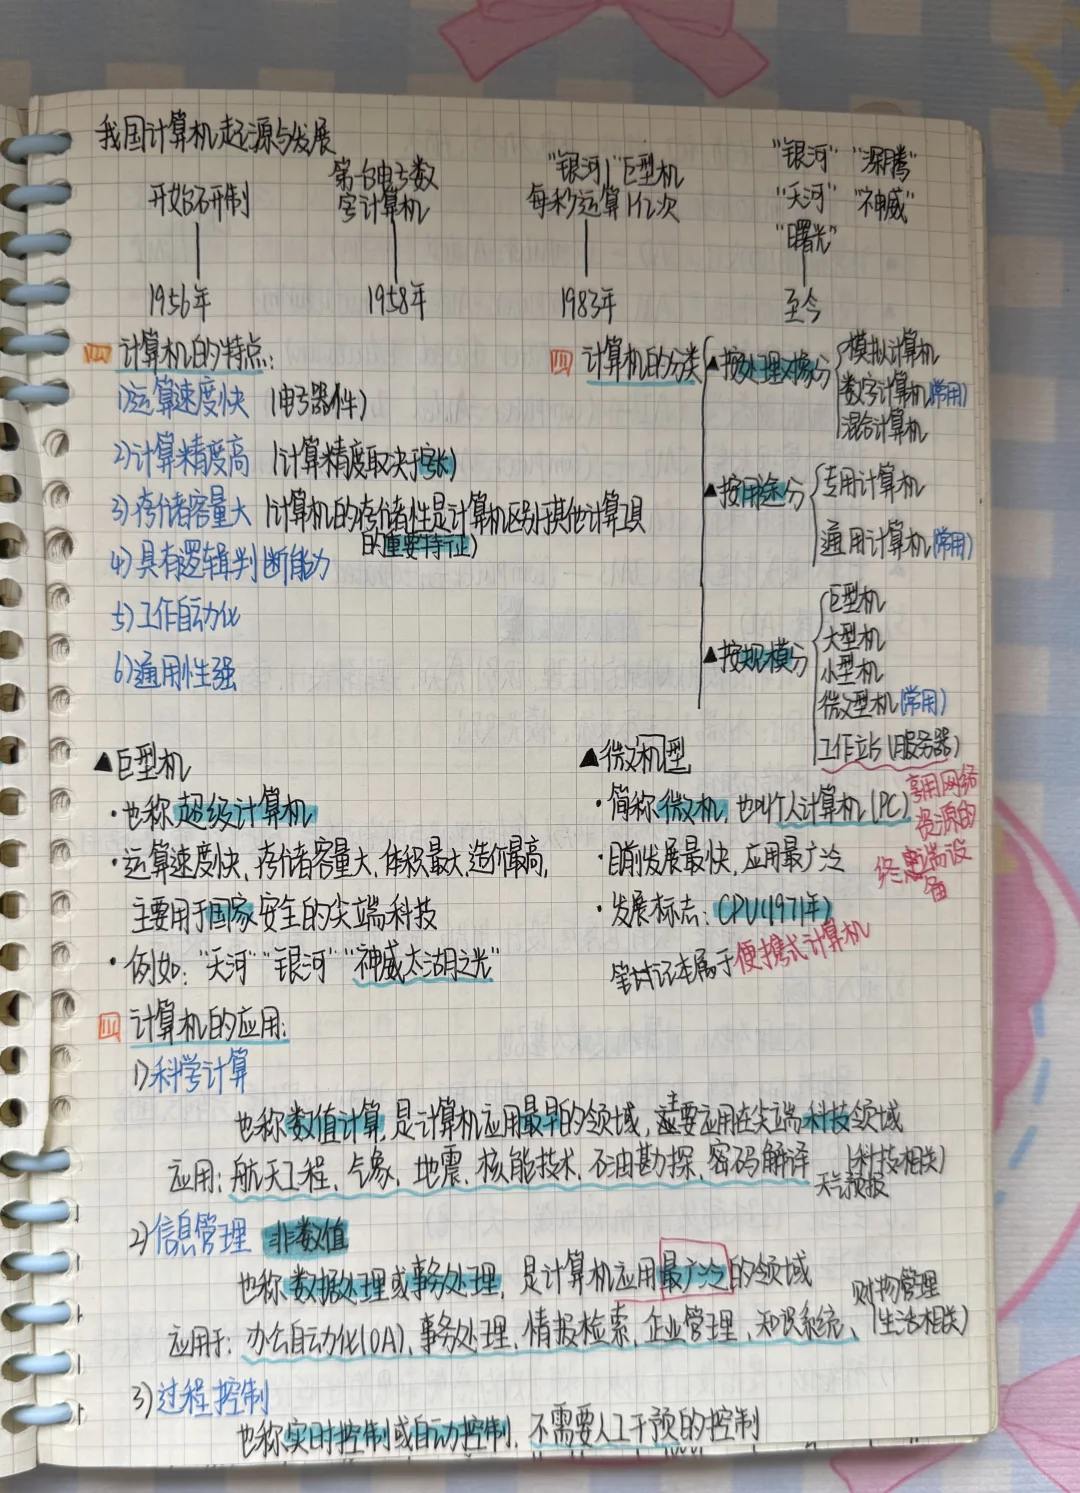 我国计算机起源与发展
开始研制
第一台电子数
字计算机
"银河Ⅰ"巨型机
每秒运算1亿次
"银河" "深腾"
"天河" "神威"
"曙光"
1956年
1958年
1983年
至今
计算机的特点:
1)运算速度快 (电子器件)
2)计算精度高 (计算精度取决于字长)
3)存储容量大 (计算机的存储性是计算机区别于其他计算工具
的重要特征)
4)具有逻辑判断能力
5)工作自动化
6)通用性强
四 计算机的分类
▲按处理对象分
模拟计算机
数字计算机(常用)
混合计算机
▲按用途分
专用计算机
通用计算机(常用)
▲按规模分
巨型机
大型机
小型机
微型机(常用)
工作站(服务器)
▲巨型机
·也称超级计算机
·运算速度快,存储容量大,体积最大,造价最高,
主要用于国家安全的尖端科技
·例如:"天河""银河""神威太湖之光"
▲微机型
·简称微机,也叫个人计算机(PC)
·目前发展最快,应用最广泛
·发展标志:CPU(1971年)
笔记本属于便携式计算机
享用网络
资源的
终端设
备
计算机的应用:
1)科学计算
也称数值计算,是计算机应用最早的领域,主要应用在尖端科技领域
应用:航天工程、气象、地震、核能技术、石油勘探、密码解译 (科技相关)
天气预报
2)信息管理 非数值
也称数据处理或事务处理,是计算机应用最广泛的领域
应用于:办公自动化(OA)、事务处理、情报检索、企业管理、知识系统、
财物管理
(生活相关)
3)过程控制
也称实时控制或自动控制,不需要人工干预的控制